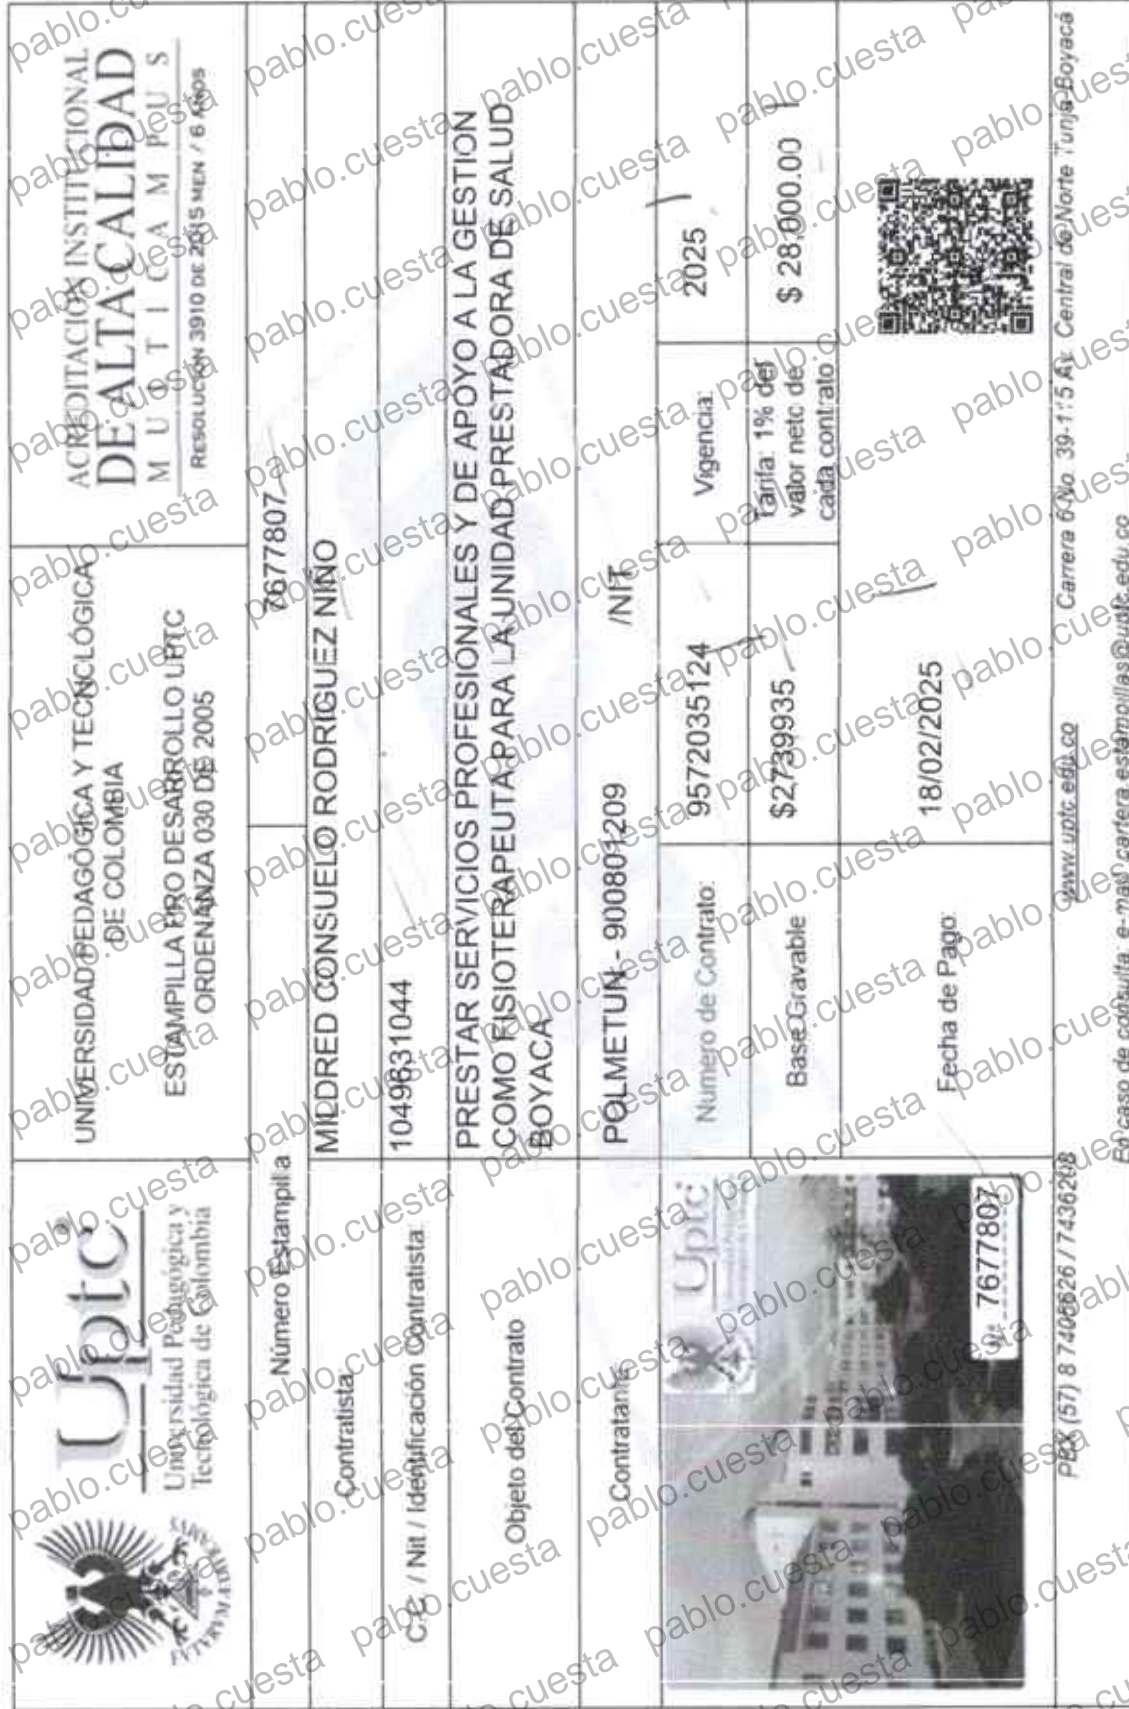 Uptc
Universidad Pedagógica y
Tecnológica de Colombia
UNIVERSIDAD PEDAGÓGICA Y TECNOLÓGICA
DE COLOMBIA
ESTAMPILLA PRO DESARROLLO UPTC
ORDENANZA 030 DE 2005
ACREDITACIÓN INSTITUCIONAL
DE ALTA CALIDAD
MULTICAMPUS
RESOLUCIÓN 3910 DE 2015 MEN / 6 AÑOS
Número Estampilla
7677807
Contratista
MILDRED CONSUELO RODRIGUEZ NIÑO
C.C / Nit / Identificación Contratista
1049631044
Objeto del Contrato
PRESTAR SERVICIOS PROFESIONALES Y DE APOYO A LA GESTION
COMO FISIOTERAPEUTA PARA LA UNIDAD PRESTADORA DE SALUD
BOYACA
Contratante
POLMETUN - 900801209 /NIT
Uptc
Nº 7677807
Número de Contrato:
9572035124
Vigencia:
2025
Base Gravable
$2739935
Tarifa: 1% del
valor neto de
cada contrato
$ 28,000.00
Fecha de Pago:
18/02/2025
PBX (57) 8 7405626 / 7436208
www.uptc.edu.co
Carrera 6 No. 39-115 Av. Central del Norte Tunja-Boyacá
En caso de consulta, e-mail cartera.estampillas@uptc.edu.co
pablo.cuesta